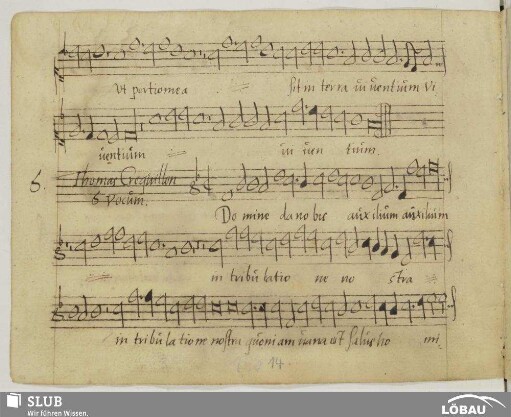 Ut portio mea sit in terra viventium vi
ventium in ven tium
6. Thomas Crequillon
6 vocum.
Domine da nobis auxilium auxilium
in tribulatio ne no stra
in tribulatione nostra quoniam vana est salus ho mi
14
SLUB
Wir führen Wissen.
LÖBAU